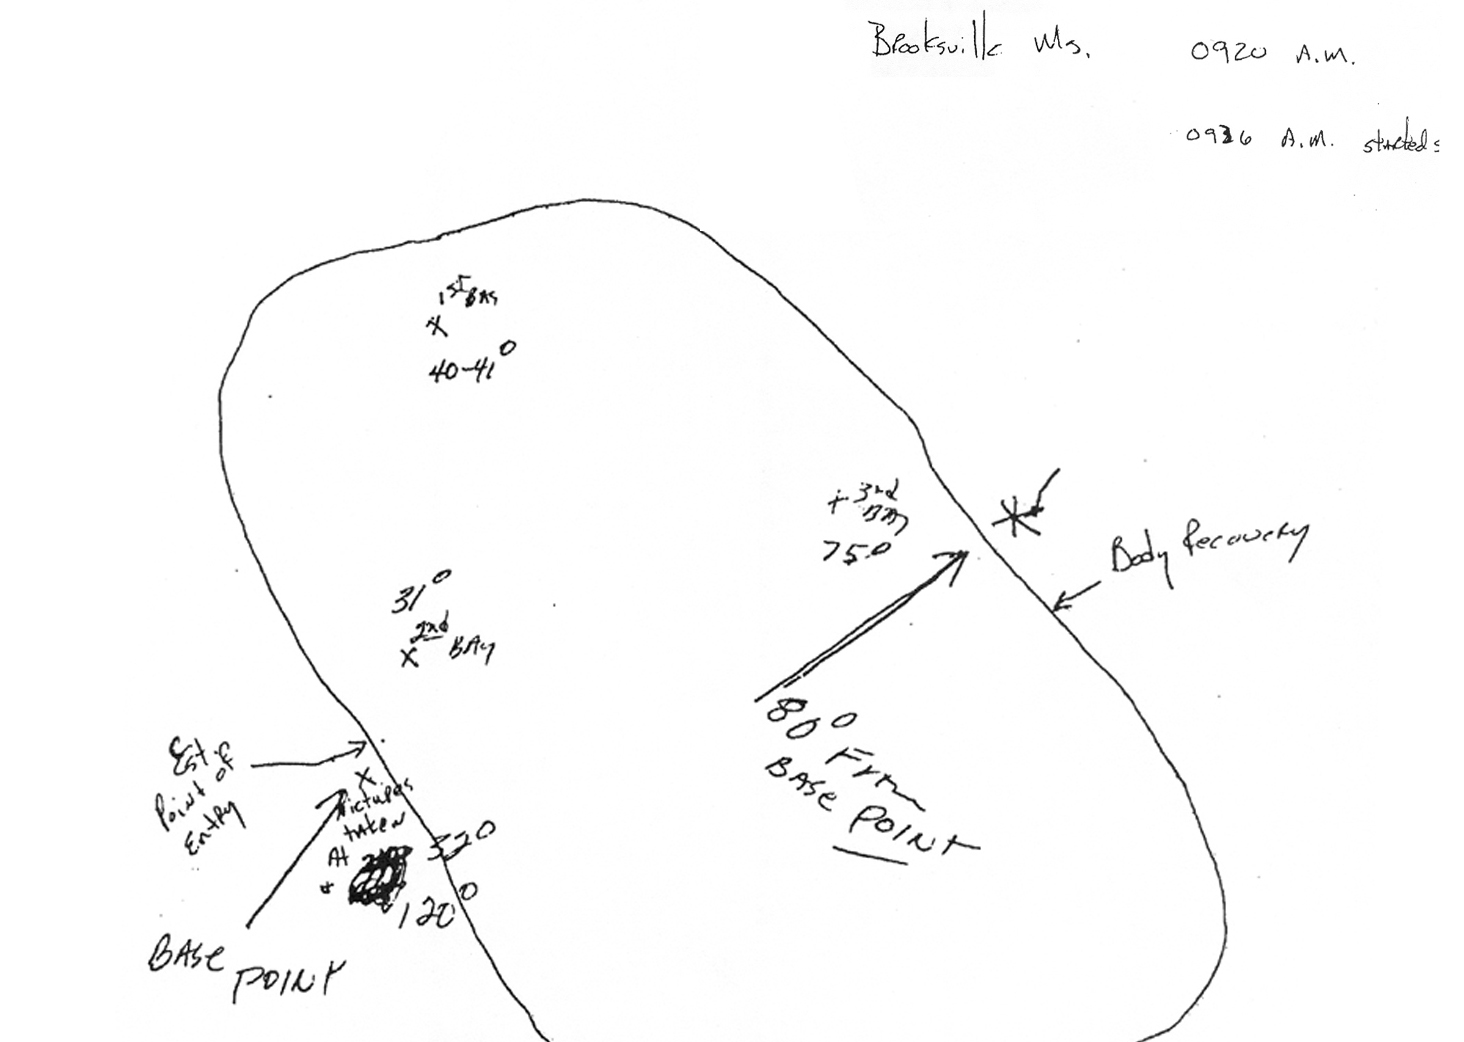 Brooksville Ms. 0920 A.M.
0926 A.M. started
1st BAY
X
40-41°
+ 3rd
BAY
75°
Body Recovery
31°
2nd BAY
X
80° From
BASE POINT
Est.
Point of
Entry
X
Pictures
taken
At
320
120°
BASE POINT